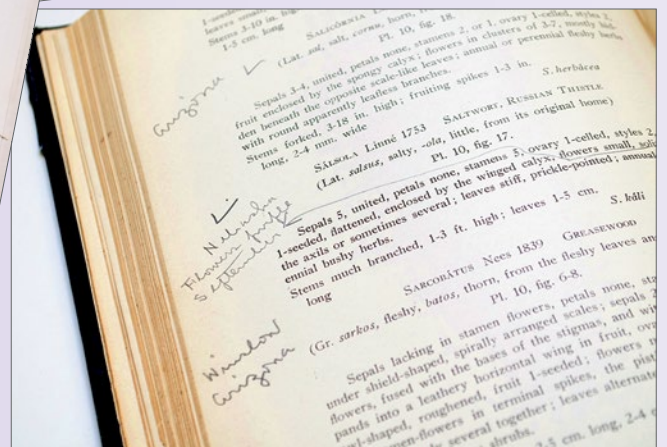 1-seeded
leaves small
Stems 3-10 in. high
1-5 cm. long
SALICÓRNIA
(Lat. sal, salt, cornu, horn,
Pl. 10, fig. 18.
Sepals 3-4, united, petals none, stamens 2, or 1, ovary 1-celled, styles 2,
fruit enclosed by the spongy calyx; flowers in clusters of 3-7, mostly hid-
den beneath the opposite scale-like leaves; annual or perennial fleshy herbs
with round apparently leafless branches.
Stems forked, 3-18 in. high; fruiting spikes 1-3 in.
long, 2-4 mm. wide
S. herbàcea
Arizona
SÁLSOLA Linné 1753 SALTWORT, RUSSIAN THISTLE
(Lat. salsus, salty, -ola, little, from its original home)
Pl. 10, fig. 17.
Sepals 5, united, petals none, stamens 5, ovary 1-celled, styles 2,
1-seeded, flattened, enclosed by the winged calyx, flowers small,
the axils or sometimes several; leaves stiff, prickle-pointed; annual
ennial bushy herbs.
Stems much branched, 1-3 ft. high; leaves 1-5 cm.
long
S. kàli
Nebraska
Flowers
September
SARCOBÁTUS Nees 1839 GREASEWOOD
(Gr. sarkos, fleshy, batos, thorn, from the fleshy leaves and
Pl. 10, fig. 6-8.
Winslow
Arizona
Sepals lacking in stamen flowers, petals none,
under shield-shaped, spirally arranged scales; sepals 2
flowers, fused with the bases of the stigmas, and
pands into a leathery horizontal wing in fruit,
roughened, fruit 1-seeded; flowers
men-flowers in terminal spikes, the
several together; leaves alternate
5 cm. long, 2-4
shrubs.